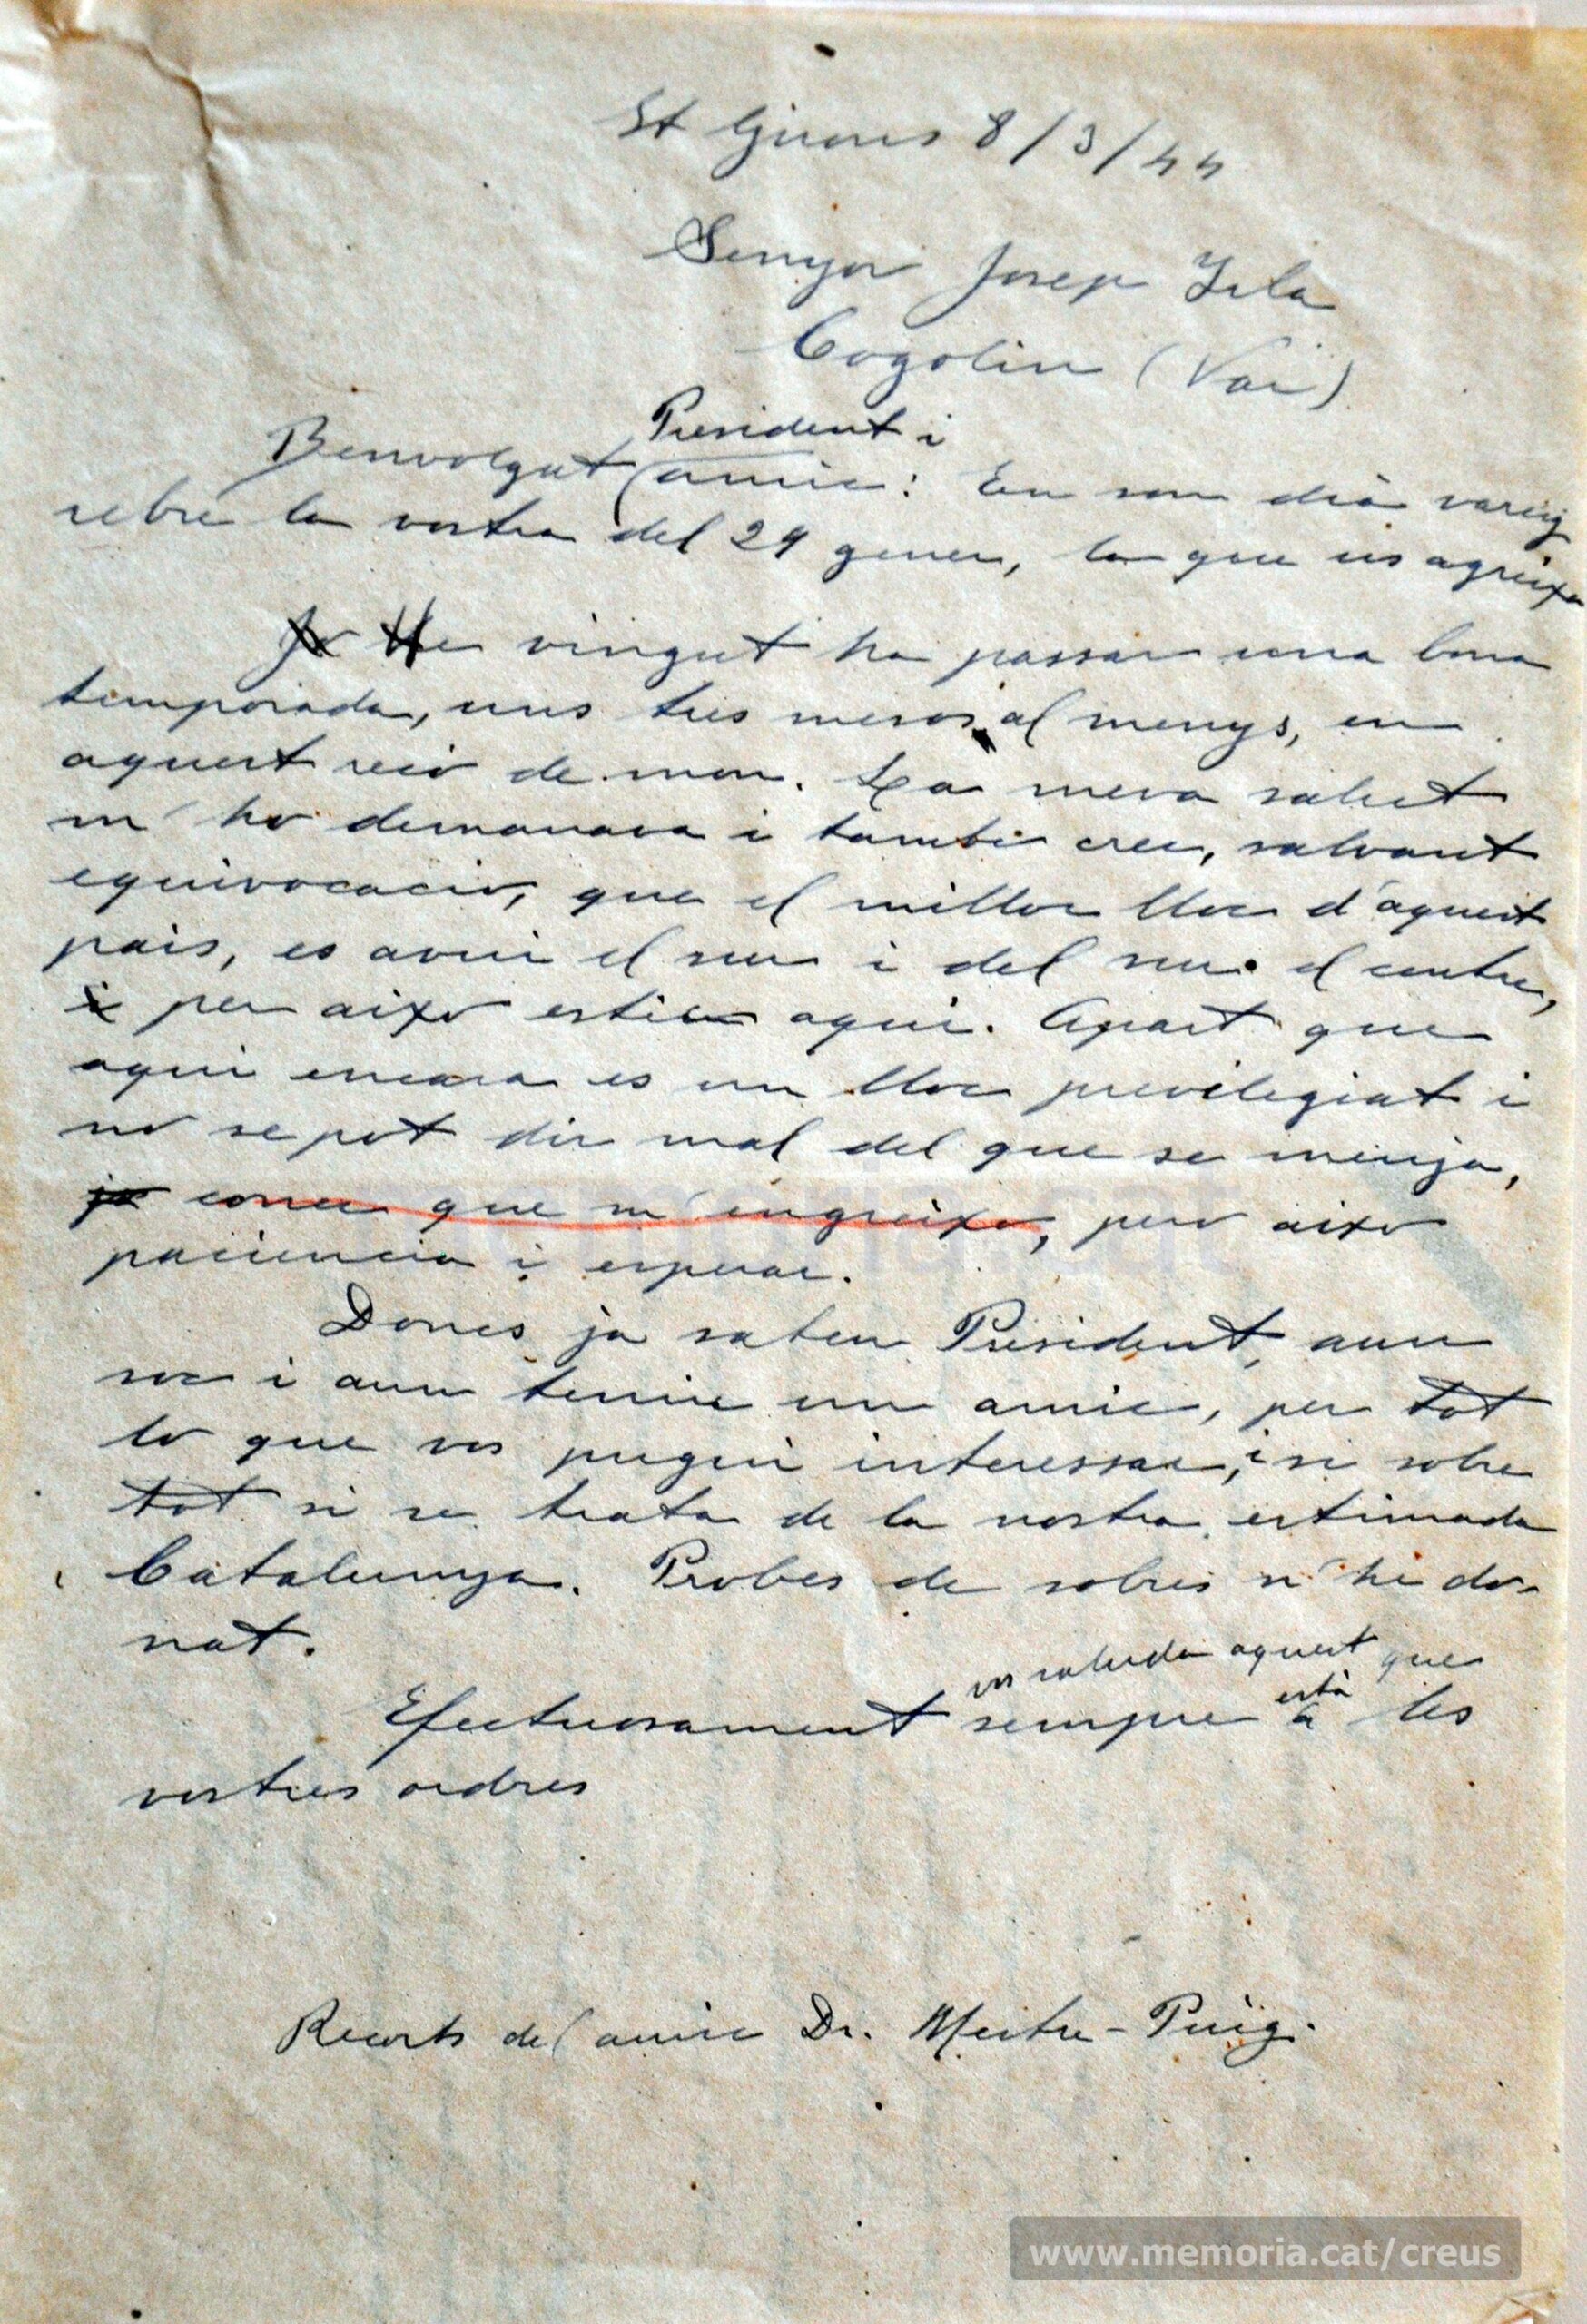 St Girons 8/3/44
Senyor Josep Irla
Cogolin (Var)
President i
Benvolgut amic: En son dia vareig
rebre la vostra del 29 gener, la que us agreixo
Jo He vingut ha passar una bona
temporada, uns tres mesos al menys, en
aquest reco de mon. La meva salut
m'ho demanava i tambe crec, salvant
equivocacio, que el millor lloc d'aquest
pais, es avui el sur i del sur el centre,
i per aixo estic aqui. Apart que
aqui encara es un lloc previlegiat i
no se pot dir mal del que se menja,
jo conec que m'engreixo, pero aixo
paciencia i esperar.
Doncs ja sabeu President, aun
soc i aun teniu un amic, per tot
lo que vos pugui interessar, i si sobre
tot si se trata de la nostra estimada
Catalunya. Probes de sobres n'he do-
nat.
us saluda aquest que
Efectuosament sempre està a les
vostres ordres
Records del amic Dr. Mestre-Puig.
www.memoria.cat/creus